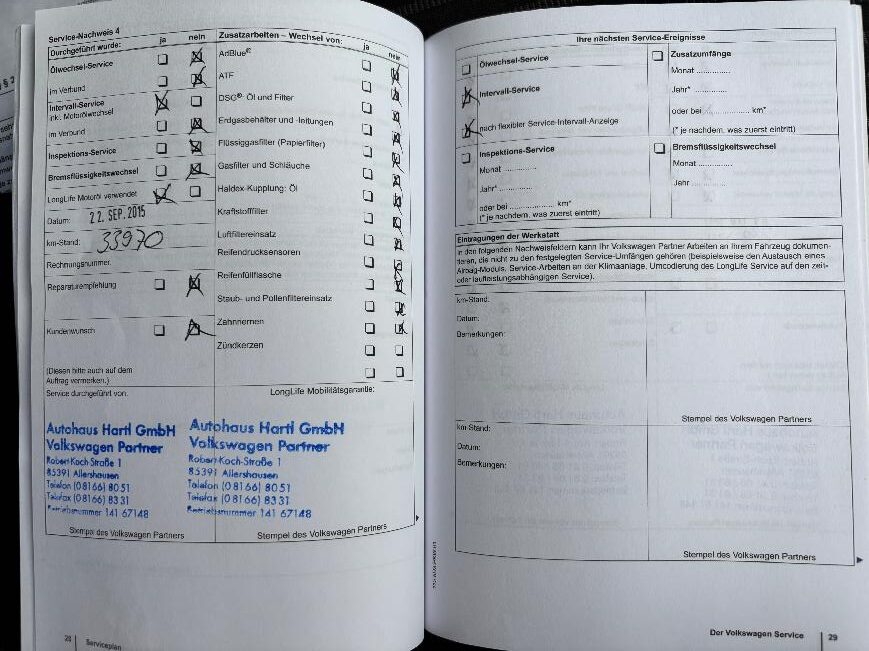 Service-Nachweis 4
Durchgeführt wurde: ja nein
Ölwechsel-Service
im Verbund
Intervall-Service
inkl. Motorölwechsel
im Verbund
Inspektions-Service
Bremsflüssigkeitswechsel
LongLife Motoröl verwendet
Datum: 22. SEP. 2015
km-Stand: 33970
Rechnungsnummer:
Reparaturempfehlung
Kundenwunsch
(Diesen bitte auch auf dem
Auftrag vermerken.)
Service durchgeführt von:
Autohaus Hartl GmbH
Volkswagen Partner
Robert-Koch-Straße 1
85391 Allershausen
Telefon (08166) 8051
Telefax (08166) 8331
Betriebsnummer 141 67148
Stempel des Volkswagen Partners
Zusatzarbeiten – Wechsel von: ja nein
AdBlue®
ATF
DSG®- Öl und Filter
Erdgasbehälter und -leitungen
Flüssiggasfilter (Papierfilter)
Gasfilter und Schläuche
Haldex-Kupplung: Öl
Kraftstofffilter
Luftfiltereinsatz
Reifendrucksensoren
Reifenfüllflasche
Staub- und Pollenfiltereinsatz
Zahnriemen
Zündkerzen
LongLife Mobilitätsgarantie:
Autohaus Hartl GmbH
Volkswagen Partner
Robert-Koch-Straße 1
85391 Allershausen
Telefon (08166) 8051
Telefax (08166) 8331
Betriebsnummer 141 67148
Stempel des Volkswagen Partners
28 Serviceplan
Ihre nächsten Service-Ereignisse
Ölwechsel-Service
Intervall-Service
nach flexibler Service-Intervall-Anzeige
Inspektions-Service
Monat ..............
Jahr* ..............
oder bei .............. km*
(* je nachdem, was zuerst eintritt)
Zusatzumfänge
Monat ..............
Jahr* ..............
oder bei .............. km*
(* je nachdem, was zuerst eintritt)
Bremsflüssigkeitswechsel
Monat ..............
Jahr ..............
Eintragungen der Werkstatt
In den folgenden Nachweisfeldern kann Ihr Volkswagen Partner Arbeiten an Ihrem Fahrzeug dokumen-
tieren, die nicht zu den festgelegten Service-Umfängen gehören (beispielsweise den Austausch eines
Airbag-Moduls, Service-Arbeiten an der Klimaanlage, Umcodierung des LongLife Service auf den zeit-
oder laufleistungsabhängigen Service).
km-Stand:
Datum:
Bemerkungen:
Stempel des Volkswagen Partners
km-Stand:
Datum:
Bemerkungen:
Stempel des Volkswagen Partners
Der Volkswagen Service 29